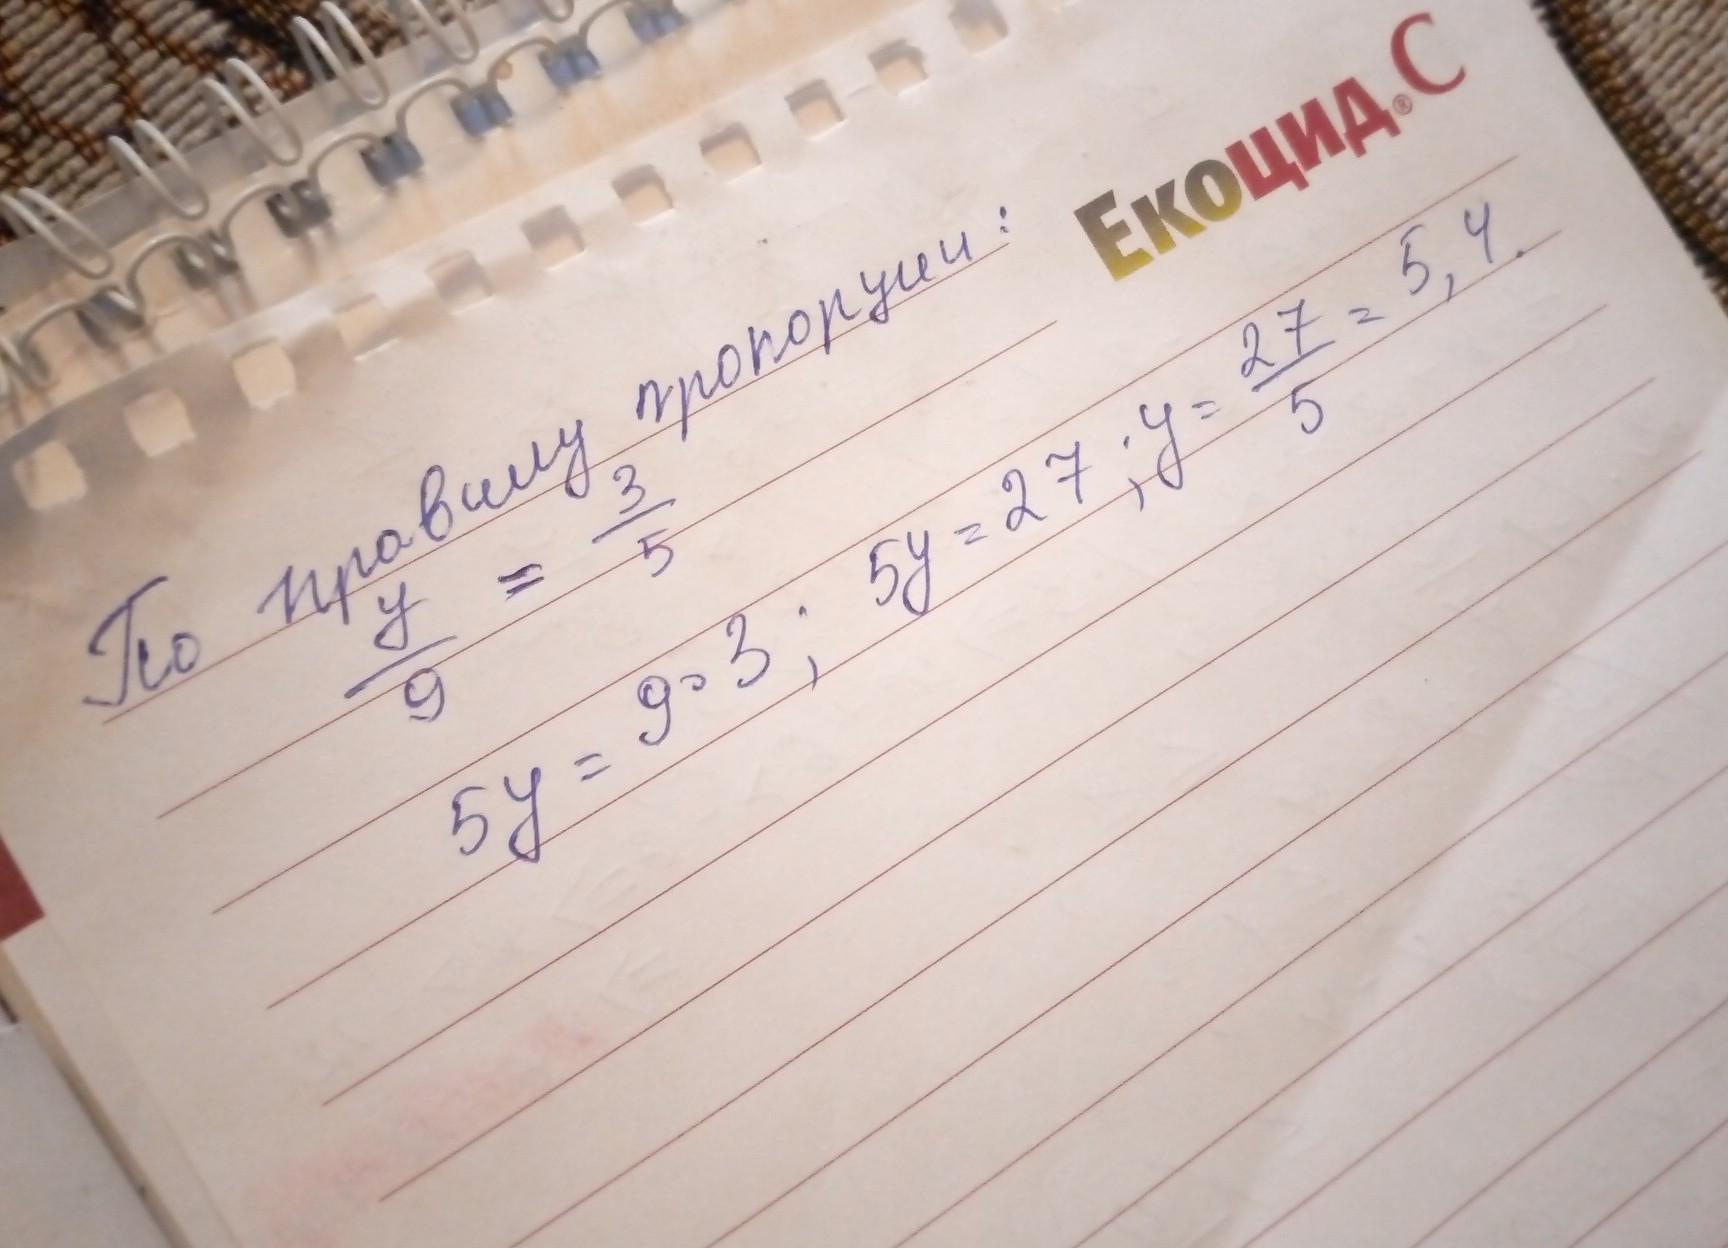 Екоцид® С
По правилу пропорции:
y/9 = 3/5
5y = 9·3; 5y = 27; y = 27/5 = 5,4.